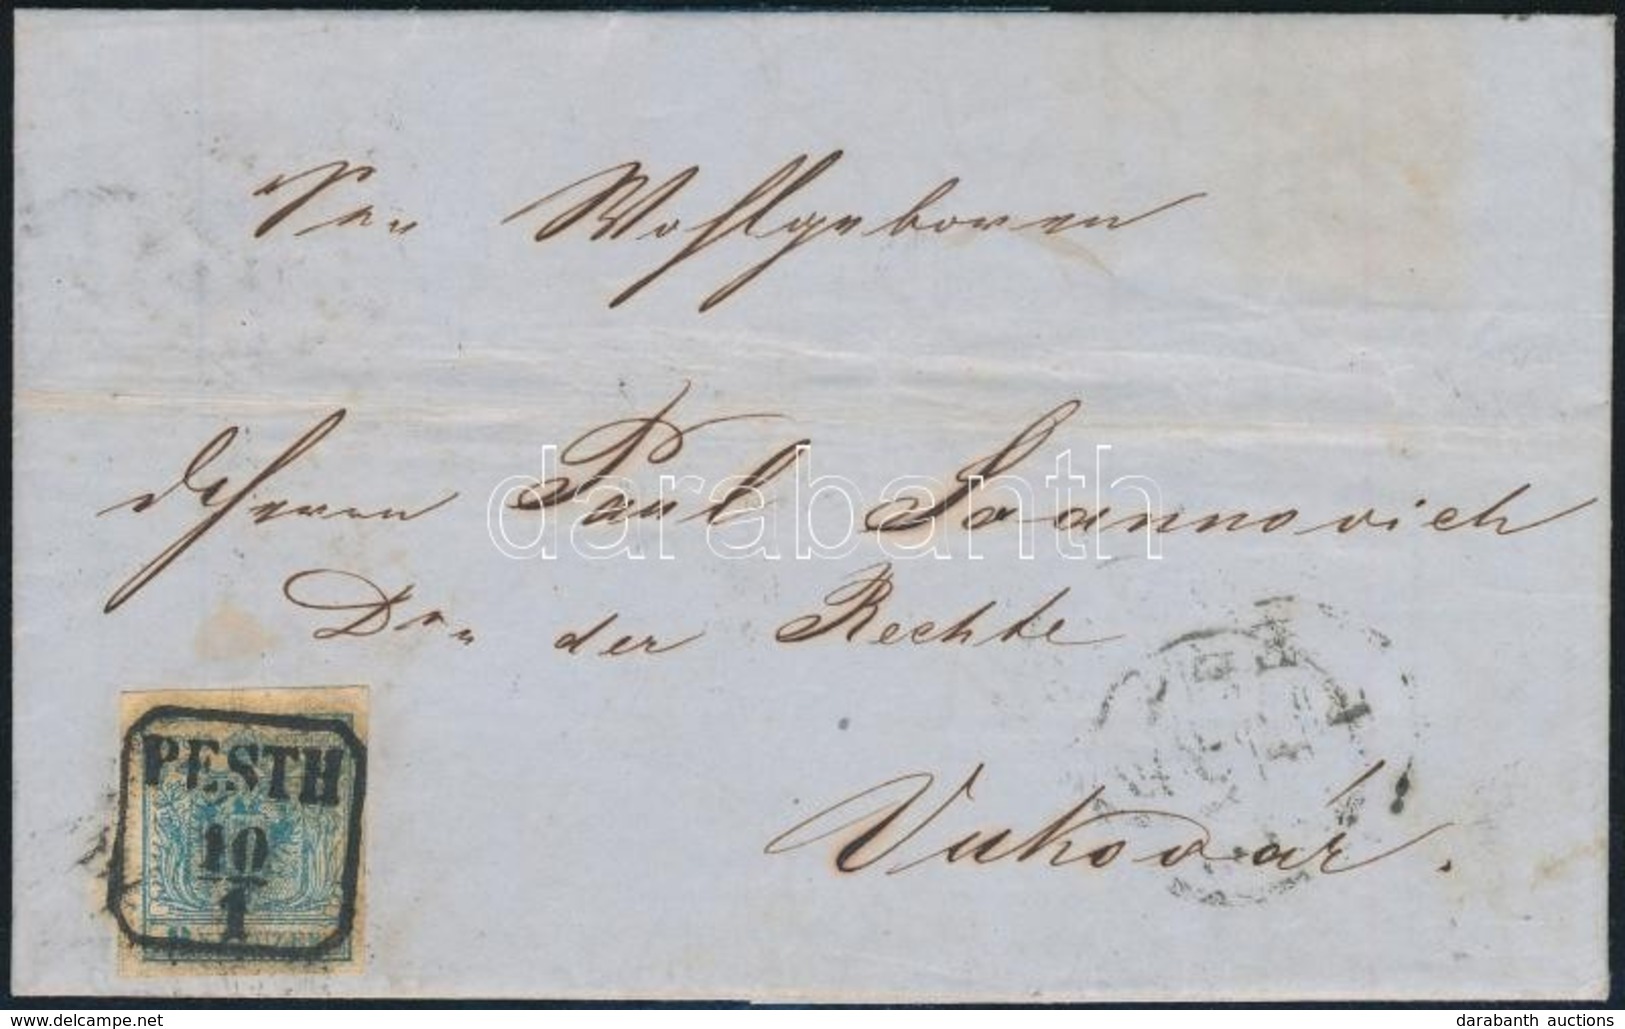 Sr. Wohlgeboren
Herrn Paul Joannovich
Dr. der Rechte
Vukovár.
PESTH
10
1
9 KREUZER
darabanth
www.delcampe.net
darabanth auctions